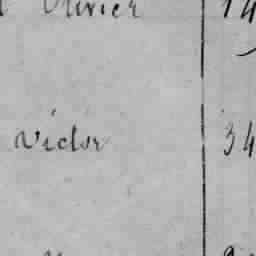 Olivier 14
Victor 34